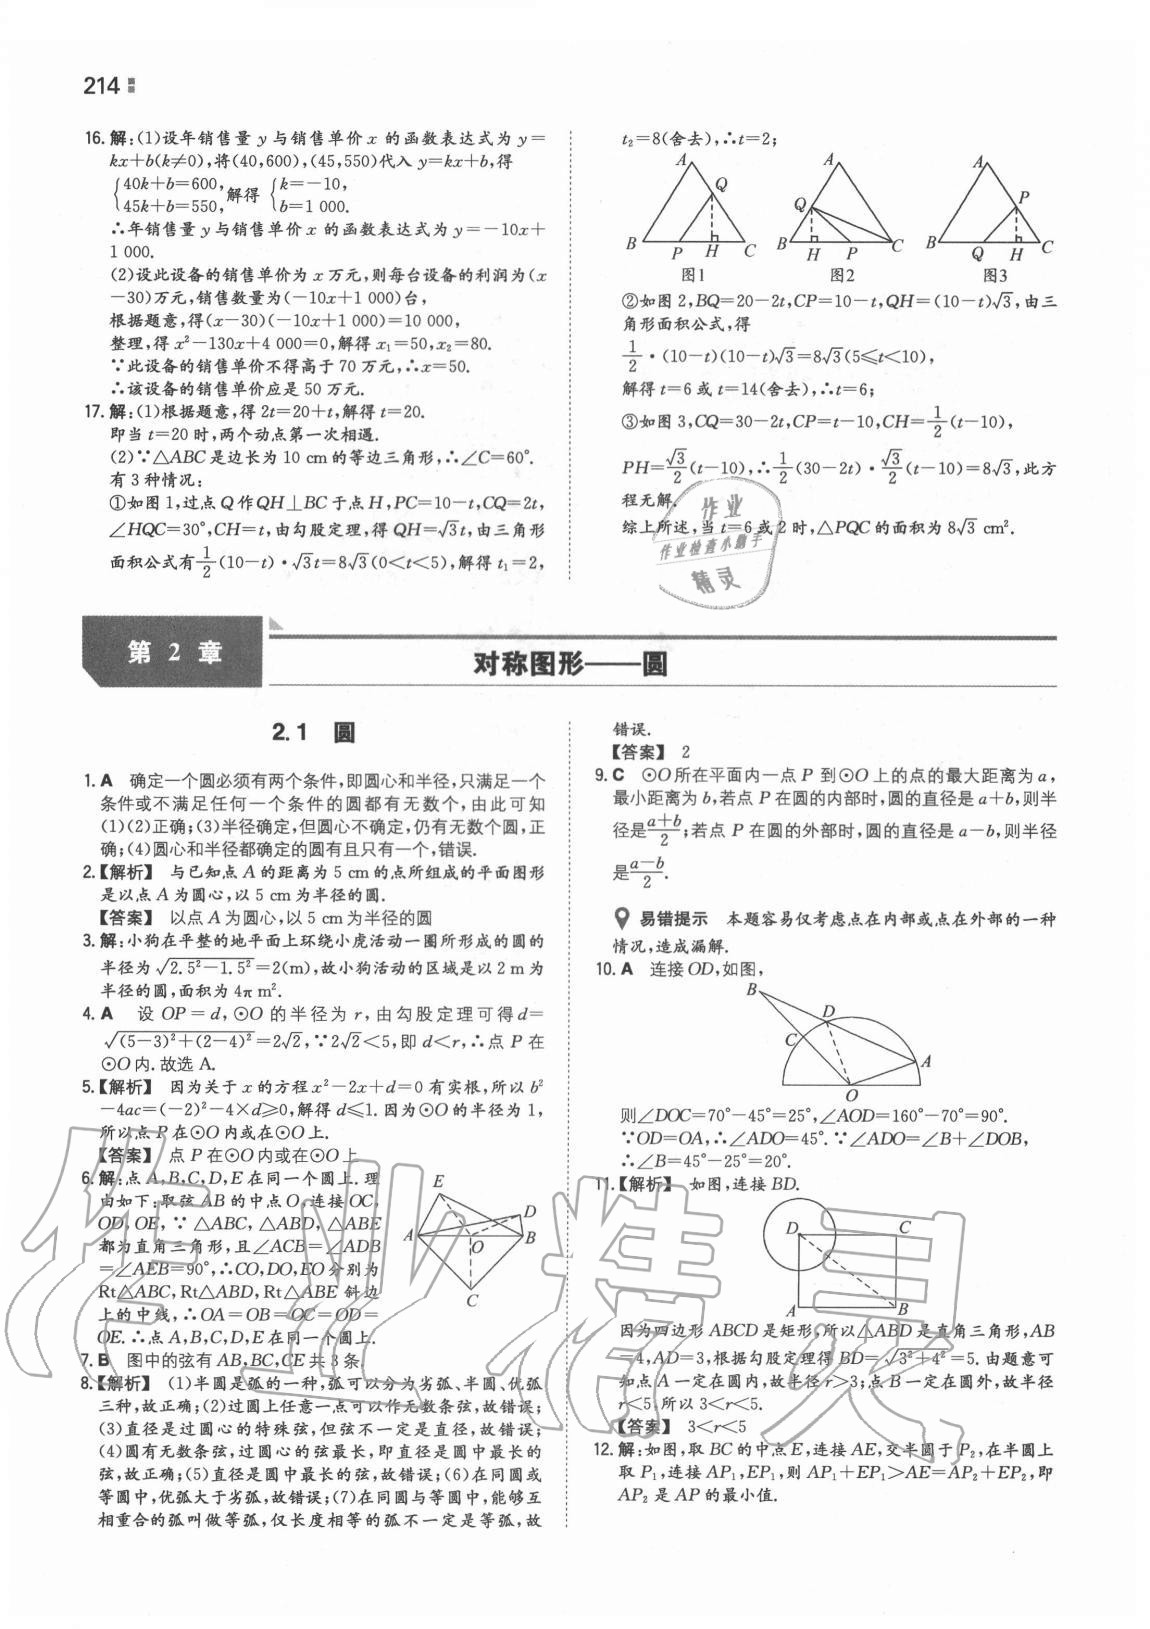 214
16. 解:(1)设年销售量 y 与销售单价 x 的函数表达式为 y=
kx+b(k≠0),将(40,600),(45,550)代入 y=kx+b,得
{40k+b=600, 45k+b=550, 解得 {k=-10, b=1 000.
∴年销售量 y 与销售单价 x 的函数表达式为 y=-10x+
1 000.
(2)设此设备的销售单价为 x 万元,则每台设备的利润为(x
-30)万元,销售数量为(-10x+1 000)台,
根据题意,得(x-30)(-10x+1 000)=10 000,
整理,得 x²-130x+4 000=0,解得 x₁=50,x₂=80.
∵此设备的销售单价不得高于 70 万元,∴x=50.
∴该设备的销售单价应是 50 万元.
17. 解:(1)根据题意,得 2t=20+t,解得 t=20.
即当 t=20 时,两个动点第一次相遇.
(2)∵△ABC 是边长为 10 cm 的等边三角形,∴∠C=60°.
有 3 种情况:
①如图 1,过点 Q 作 QH⊥BC 于点 H,PC=10-t,CQ=2t,
∠HQC=30°,CH=t,由勾股定理,得 QH=√3t,由三角形
面积公式有 1/2 (10-t)·√3t=8√3(0<t<5),解得 t₁=2,
t₂=8(舍去),∴t=2;
A Q B P H C 图1
A Q B H P C 图2
A P B Q H C 图3
②如图 2,BQ=20-2t,CP=10-t,QH=(10-t)√3,由三
角形面积公式,得
1/2 ·(10-t)(10-t)√3=8√3(5≤t<10),
解得 t=6 或 t=14(舍去),∴t=6;
③如图 3,CQ=30-2t,CP=t-10,CH=1/2 (t-10),
PH=√3/2 (t-10),∴1/2 (30-2t)·√3/2 (t-10)=8√3,此方
程无解.
综上所述,当 t=6 或 2 时,△PQC 的面积为 8√3 cm².
作业
作业检查小助手
精灵
第 2 章
对称图形——圆
2.1 圆
1. A 确定一个圆必须有两个条件,即圆心和半径,只满足一个
条件或不满足任何一个条件的圆都有无数个,由此可知
(1)(2)正确;(3)半径确定,但圆心不确定,仍有无数个圆,正
确;(4)圆心和半径都确定的圆有且只有一个,错误.
2.【解析】 与已知点 A 的距离为 5 cm 的点所组成的平面图形
是以点 A 为圆心,以 5 cm 为半径的圆.
【答案】 以点 A 为圆心,以 5 cm 为半径的圆
3. 解:小狗在平整的地平面上环绕小虎活动一圈所形成的圆的
半径为√(2.5²-1.5²)=2(m),故小狗活动的区域是以 2 m 为
半径的圆,面积为 4π m².
4. A 设 OP=d,⊙O 的半径为 r,由勾股定理可得 d=
√((5-3)²+(2-4)²)=2√2,∵2√2<5,即 d<r,∴点 P 在
⊙O 内.故选 A.
5.【解析】 因为关于 x 的方程 x²-2x+d=0 有实根,所以 b²
-4ac=(-2)²-4×d≥0,解得 d≤1.因为⊙O 的半径为 1,
所以点 P 在⊙O 内或在⊙O 上.
【答案】 点 P 在⊙O 内或在⊙O 上
6. 解:点 A,B,C,D,E 在同一个圆上.理
由如下:取弦 AB 的中点 O,连接 OC,
OD,OE,∵△ABC,△ABD,△ABE
都为直角三角形,且∠ACB=∠ADB
=∠AEB=90°,∴CO,DO,EO 分别为
Rt△ABC,Rt△ABD,Rt△ABE 斜边
上的中线,∴OA=OB=OC=OD=
OE.∴点 A,B,C,D,E 在同一个圆上.
E D A O B C
7. B 图中的弦有 AB,BC,CE 共 3 条.
8.【解析】 (1)半圆是弧的一种,弧可以分为劣弧、半圆、优弧
三种,故正确;(2)过圆上任意一点可以作无数条弦,故错误;
(3)直径是过圆心的特殊弦,但弦不一定是直径,故错误;
(4)圆有无数条弦,过圆心的弦最长,即直径是圆中最长的
弦,故正确;(5)直径是圆中最长的弦,故错误;(6)在同圆或
等圆中,优弧大于劣弧,故错误;(7)在同圆与等圆中,能够互
相重合的弧叫做等弧,仅长度相等的弧不一定是等弧,故
错误.
【答案】 2
9. C ⊙O 所在平面内一点 P 到⊙O 上的点的最大距离为 a,
最小距离为 b,若点 P 在圆的内部时,圆的直径是 a+b,则半
径是(a+b)/2;若点 P 在圆的外部时,圆的直径是 a-b,则半径
是(a-b)/2.
易错提示 本题容易仅考虑点在内部或点在外部的一种
情况,造成漏解.
10. A 连接 OD,如图,
B D C A O
则∠DOC=70°-45°=25°,∠AOD=160°-70°=90°.
∵OD=OA,∴∠ADO=45°.∵∠ADO=∠B+∠DOB,
∴∠B=45°-25°=20°.
11.【解析】 如图,连接 BD.
D C A B
因为四边形 ABCD 是矩形,所以△ABD 是直角三角形,AB
=4,AD=3,根据勾股定理得 BD=√(3²+4²)=5.由题意可
知点 A 一定在圆内,故半径 r>3;点 B 一定在圆外,故半径
r<5.所以 3<r<5.
【答案】 3<r<5
12. 解:如图,取 BC 的中点 E,连接 AE,交半圆于 P₂,在半圆上
取 P₁,连接 AP₁,EP₁,则 AP₁+EP₁>AE=AP₂+EP₂,即
AP₂ 是 AP 的最小值.
作业精灵